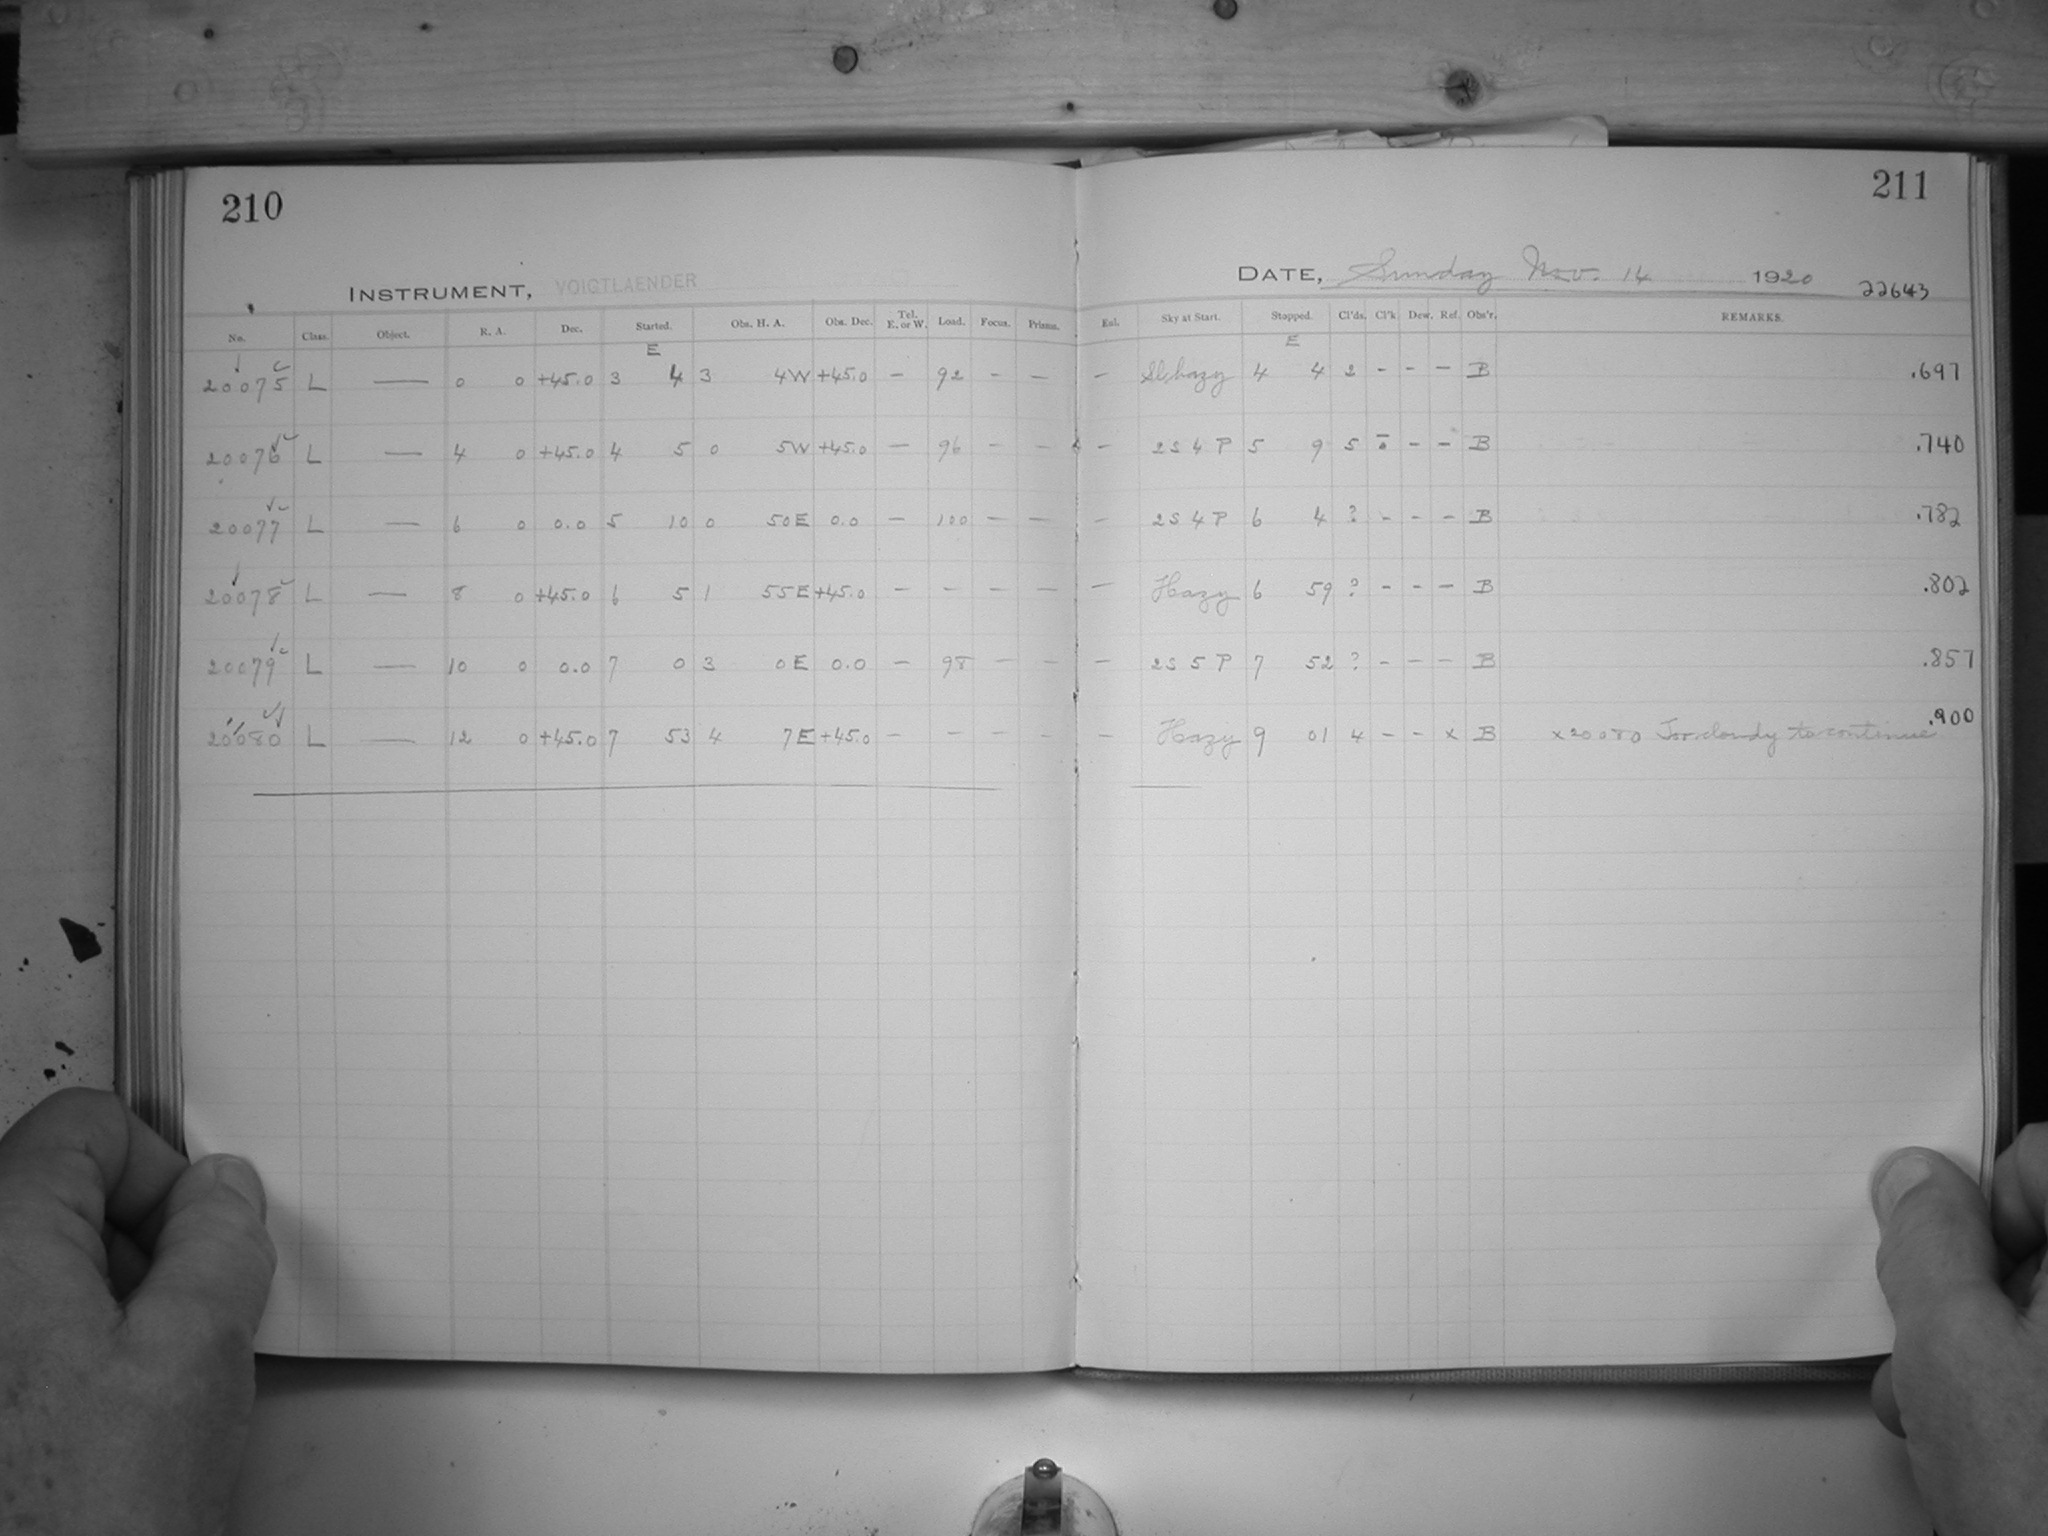 210
INSTRUMENT, VOIGTLAENDER
No. Class. Object. R. A. Dec. Started. Obs. H. A. Obs. Dec. Tel. E. or W. Load. Focus. Prisms.
E
20075 L — 0 0 +45.0 3 4 3 4W +45.0 — 92 - —
20076 L — 4 0 +45.0 4 5 0 5W +45.0 — 96 - —
20077 L — 6 0 0.0 5 10 0 50E 0.0 — 100 — —
20078 L — 8 0 +45.0 6 5 1 55E +45.0 — - — —
20079 L — 10 0 0.0 7 0 3 0E 0.0 — 98 — —
20080 L — 12 0 +45.0 7 53 4 7E +45.0 — — — —
211
DATE, Sunday Nov. 14 1920
22643
Ext. Sky at Start. Stopped. Cl'ds. Cl'k Dew. Ref. Obs'r. REMARKS.
E
— Sl. hazy 4 4 2 - - — B .697
— 2S 4 P 5 9 5 - - B .740
— 2S 4 P 6 4 ? - - - B .782
— Hazy 6 59 ? - - — B .802
— 2S 5 P 7 52 ? - - - B .857
— Hazy 9 01 4 - - x B x20080 Too cloudy to continue .900